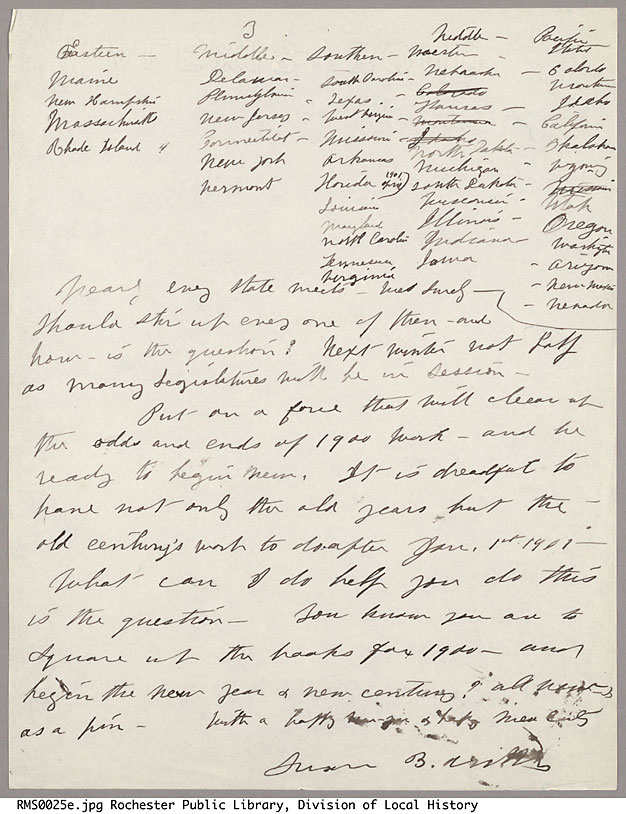 3
Eastern — Middle — Southern — Middle — Pacific
Western States
Maine Delaware — South Carolina — Nebraska — Colorado
New Hampshire Pennsylvania — Texas — Colorado — Montana
Massachusetts New Jersey — West Virginia — Kansas — Idaho
Rhode Island " Connecticut — Missouri — Montana — California
New York Arkansas Idaho
Vermont Florida 1901 North Dakota —
Louisiana Michigan — Wyoming
Maryland South Dakota — Utah
North Carolina Wisconsin — Oregon
Tennessee Illinois — Washington
Virginia Indiana — Arizona
Iowa — New Mexico
— Nevada
Nearly every State meets — We surely —
should stir up every one of them — and
how — is the question? Next winter not half
as many Legislatures will be in session —
Put on a force that will clear up
the odds and ends of 1900 work — and be
ready to begin new. It is dreadful to
have not only the old years but the —
old century's work to do after Jan. 1st 1901 —
What can I do help you do this
is the question — You know you are to
square up the books for 1900 — and
begin the new year & new century? all
as a pin — With a happy new-year & happy new century
Susan B. Anthony
RMS0025e.jpg Rochester Public Library, Division of Local History